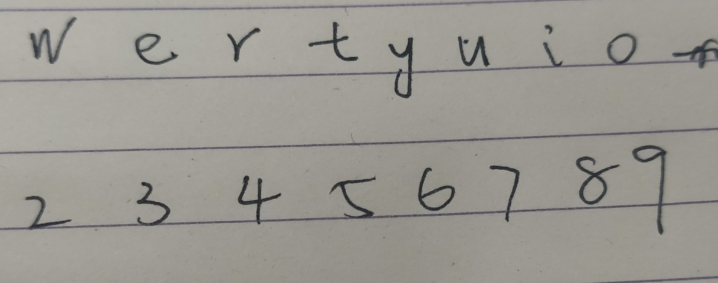 w e r t y u i o
2 3 4 5 6 7 8 9